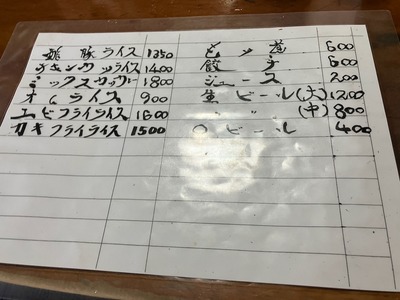 酢豚ライス 1350
チキンカツライス 1400
ミックスカツカレー 1800
オムライス 900
エビフライライス 1600
カキフライライス 1500
600
餃子 600
ジュース 200
生ビール(大) 1200
〃 〃 (中) 800
〇ビール 400